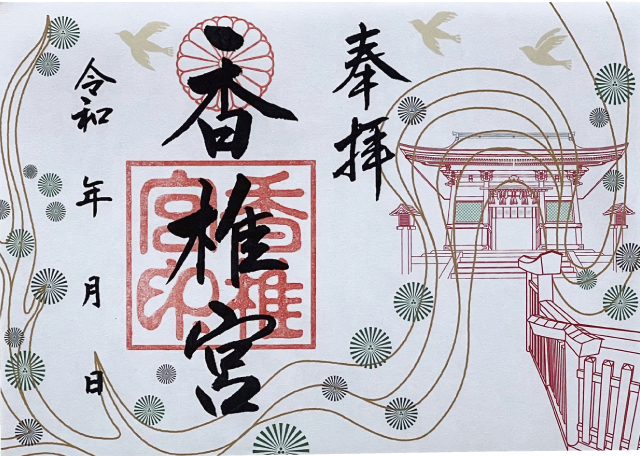 奉拝
香椎宮
香椎宮印
令和 年 月 日